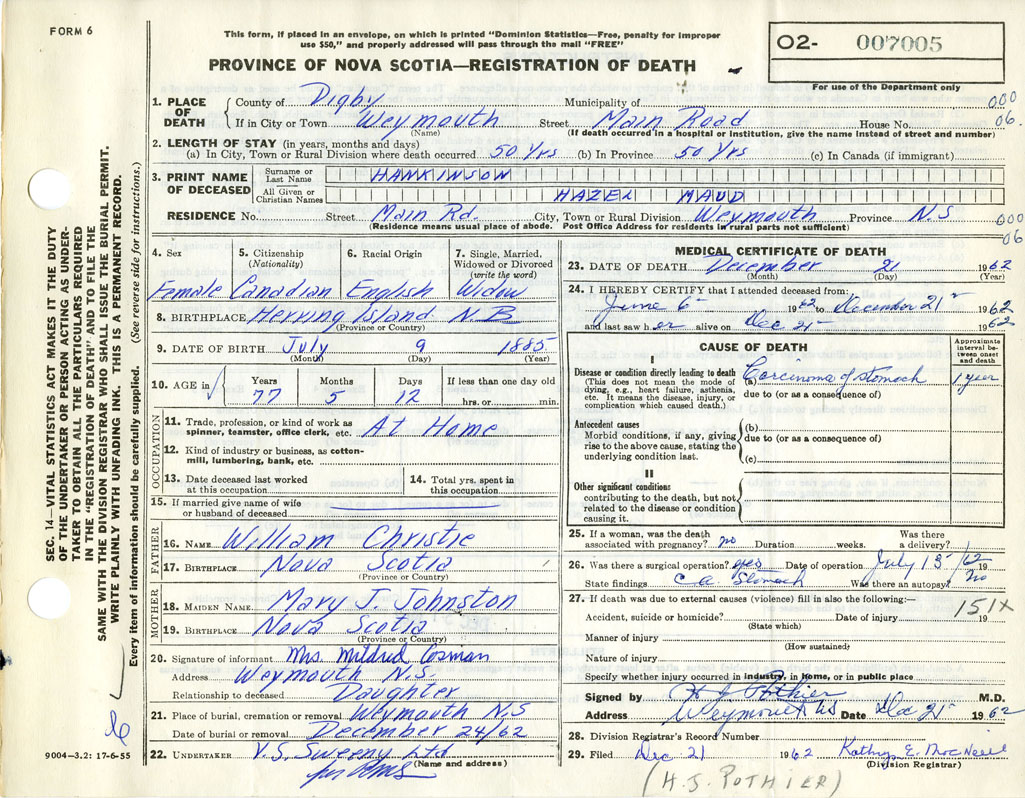 FORM 6
This form, if placed in an envelope, on which is printed "Dominion Statistics—Free, penalty for improper
use $50," and properly addressed will pass through the mail "FREE"
PROVINCE OF NOVA SCOTIA—REGISTRATION OF DEATH
O2- 007005
For use of the Department only
SEC. 14—VITAL STATISTICS ACT MAKES IT THE DUTY
OF THE UNDERTAKER OR PERSON ACTING AS UNDER-
TAKER TO OBTAIN ALL THE PARTICULARS REQUIRED
IN THE "REGISTRATION OF DEATH" AND TO FILE THE
SAME WITH THE DIVISION REGISTRAR WHO SHALL ISSUE THE BURIAL PERMIT.
WRITE PLAINLY WITH UNFADING INK. THIS IS A PERMANENT RECORD.
Every item of information should be carefully supplied. (See reverse side for instructions.)
1. PLACE OF DEATH
County of Digby Municipality of 000
If in City or Town Weymouth Street Main Road House No. 06.
(Name) (If death occurred in a hospital or institution, give the name instead of street and number)
2. LENGTH OF STAY (in years, months and days)
(a) In City, Town or Rural Division where death occurred 50 Yrs (b) In Province 50 Yrs (c) In Canada (if immigrant)
3. PRINT NAME OF DECEASED
Surname or Last Name HANKINSON
All Given or Christian Names HAZEL MAUD
RESIDENCE No. Street Main Rd. City, Town or Rural Division Weymouth Province N.S 000
(Residence means usual place of abode. Post Office Address for residents in rural parts not sufficient) 06
4. Sex
Female
5. Citizenship (Nationality)
Canadian
6. Racial Origin
English
7. Single, Married, Widowed or Divorced (write the word)
Widow
8. BIRTHPLACE Herring Island N.B
(Province or Country)
9. DATE OF BIRTH July 9 1885
(Month) (Day) (Year)
10. AGE in Years Months Days If less than one day old
77 5 12 hrs. or min.
OCCUPATION
11. Trade, profession, or kind of work as
spinner, teamster, office clerk, etc. At Home
12. Kind of industry or business, as cotton-
mill, lumbering, bank, etc.
13. Date deceased last worked
at this occupation
14. Total yrs. spent in
this occupation
15. If married give name of wife
or husband of deceased
FATHER
16. NAME William Christie
17. BIRTHPLACE Nova Scotia
(Province or Country)
MOTHER
18. MAIDEN NAME Mary J. Johnston
19. BIRTHPLACE Nova Scotia
(Province or Country)
20. Signature of informant Mrs. Mildred Cosman
Address Weymouth N.S.
Relationship to deceased Daughter
21. Place of burial, cremation or removal Weymouth N.S
Date of burial or removal December 24/62
22. UNDERTAKER V.S. Sweeny Ltd
(Name and address)
9004—3.2: 17-6-55
MEDICAL CERTIFICATE OF DEATH
23. DATE OF DEATH December 21 1962
(Month) (Day) (Year)
24. I HEREBY CERTIFY that I attended deceased from:
June 6 1962 to December 21 1962
and last saw her alive on Dec 21 1962
CAUSE OF DEATH
Approximate interval between onset and death
I
Disease or condition directly leading to death
(This does not mean the mode of
dying, e.g., heart failure, asthenia,
etc. It means the disease, injury, or
complication which caused death.)
(a) Carcinoma of stomach 1 year
due to (or as a consequence of)
Antecedent causes
Morbid conditions, if any, giving
rise to the above cause, stating the
underlying condition last.
(b)
due to (or as a consequence of)
(c)
II
Other significant conditions
contributing to the death, but not
related to the disease or condition
causing it.
25. If a woman, was the death
associated with pregnancy? no Duration weeks. Was there a delivery?
26. Was there a surgical operation? yes Date of operation July 13/62 19
State findings ca. Stomach Was there an autopsy? no
27. If death was due to external causes (violence) fill in also the following:—
151X
Accident, suicide or homicide? Date of injury 19
(State which)
Manner of injury
(How sustained)
Nature of injury
Specify whether injury occurred in industry, in home, or in public place
Signed by H J Pothier M.D.
Address Weymouth NS Date Dec 21 1962
28. Division Registrar's Record Number
29. Filed Dec 21 1962 Kathryn E. MacNeill
(Division Registrar)
(H.J. POTHIER)